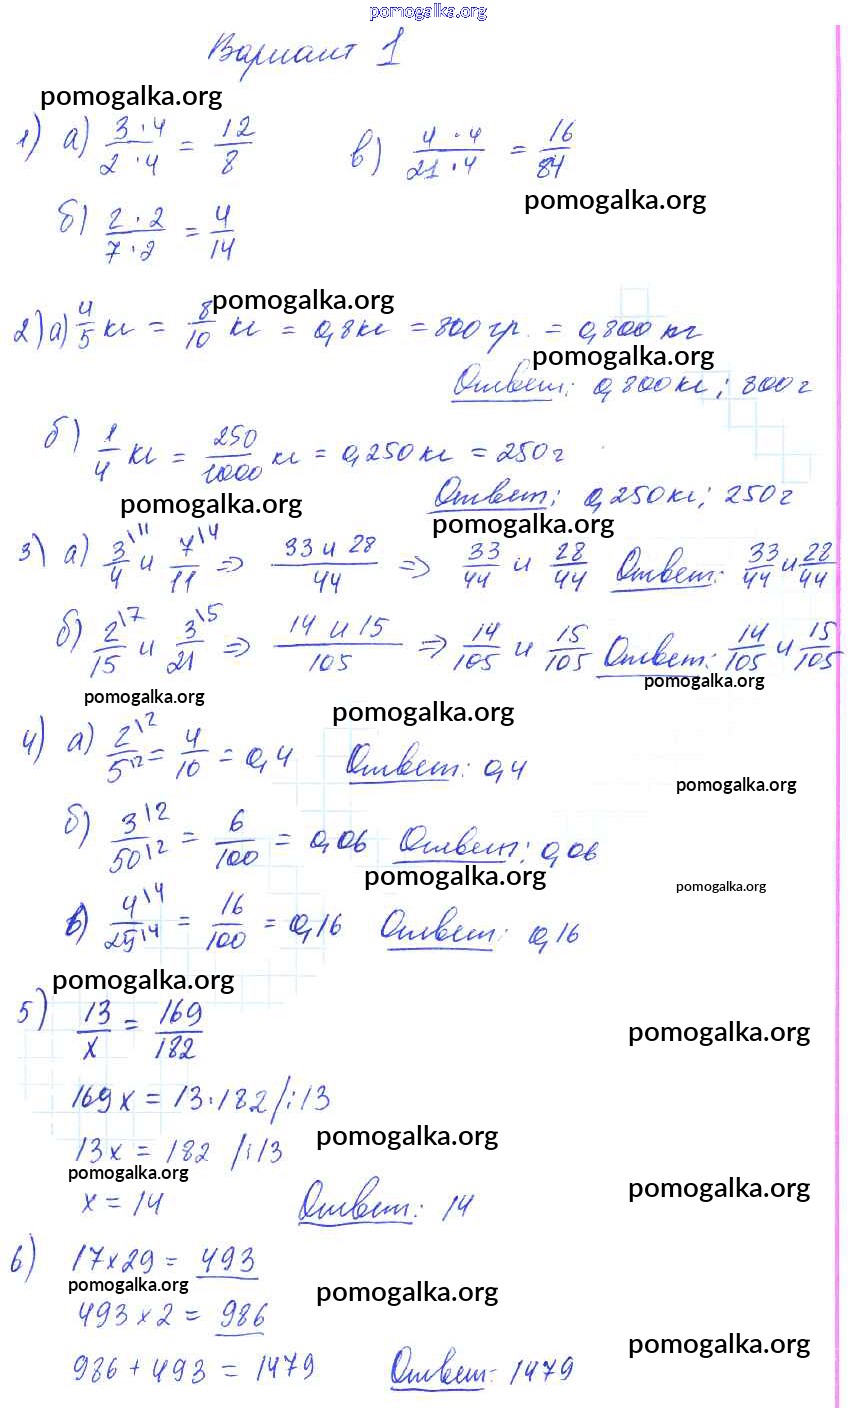 pomogalka.org
Вариант 1
pomogalka.org
1) а) 3·4/2·4 = 12/8 в) 4·4/21·4 = 16/84
pomogalka.org
б) 2·2/7·2 = 4/14
pomogalka.org
2) а) 4/5 кг = 8/10 кг = 0,8кг = 800гр. = 0,800 кг
pomogalka.org
Ответ: 0,800кг; 800г
б) 1/4 кг = 250/1000 кг = 0,250кг = 250г
Ответ: 0,250кг; 250г
pomogalka.org
pomogalka.org
3) а) 3\11/4 и 7\4/11 => 33 и 28/44 => 33/44 и 28/44 Ответ: 33/44 и 28/44
б) 2\7/15 и 3\5/21 => 14 и 15/105 => 14/105 и 15/105 Ответ: 14/105 и 15/105
pomogalka.org
pomogalka.org
pomogalka.org
4) а) 2\2/5\2 = 4/10 = 0,4 Ответ: 0,4
pomogalka.org
б) 3\2/50\2 = 6/100 = 0,06 Ответ: 0,06
pomogalka.org
pomogalka.org
в) 4\4/25\4 = 16/100 = 0,16 Ответ: 0,16
pomogalka.org
5) 13/x = 169/182
pomogalka.org
169x = 13·182 /:13
pomogalka.org
13x = 182 /:13
pomogalka.org
pomogalka.org
x = 14 Ответ: 14
6) 17×29 = 493
pomogalka.org
pomogalka.org
493×2 = 986
pomogalka.org
986+493 = 1479 Ответ: 1479